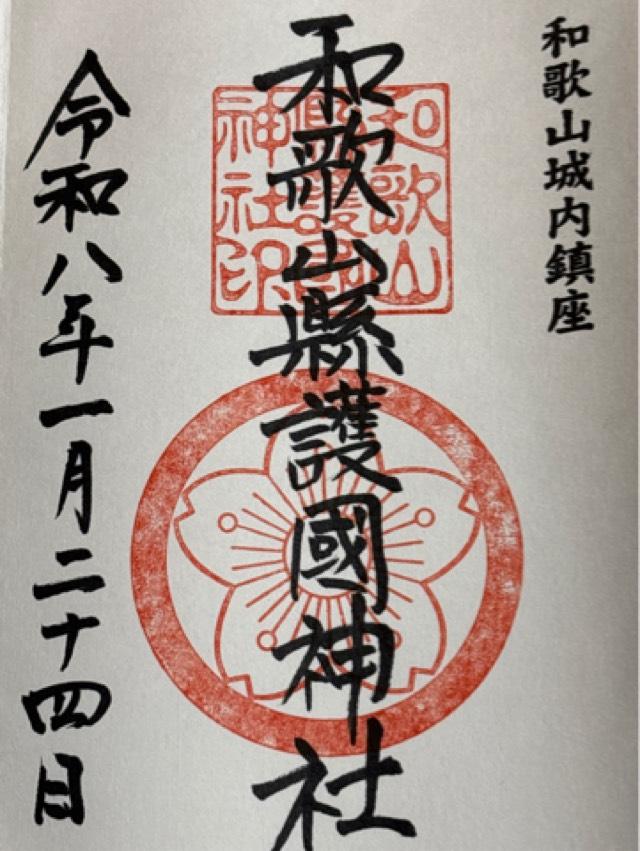 和歌山城内鎮座
和歌山縣護國神社
和歌山
縣護國
神社印
令和八年一月二十四日